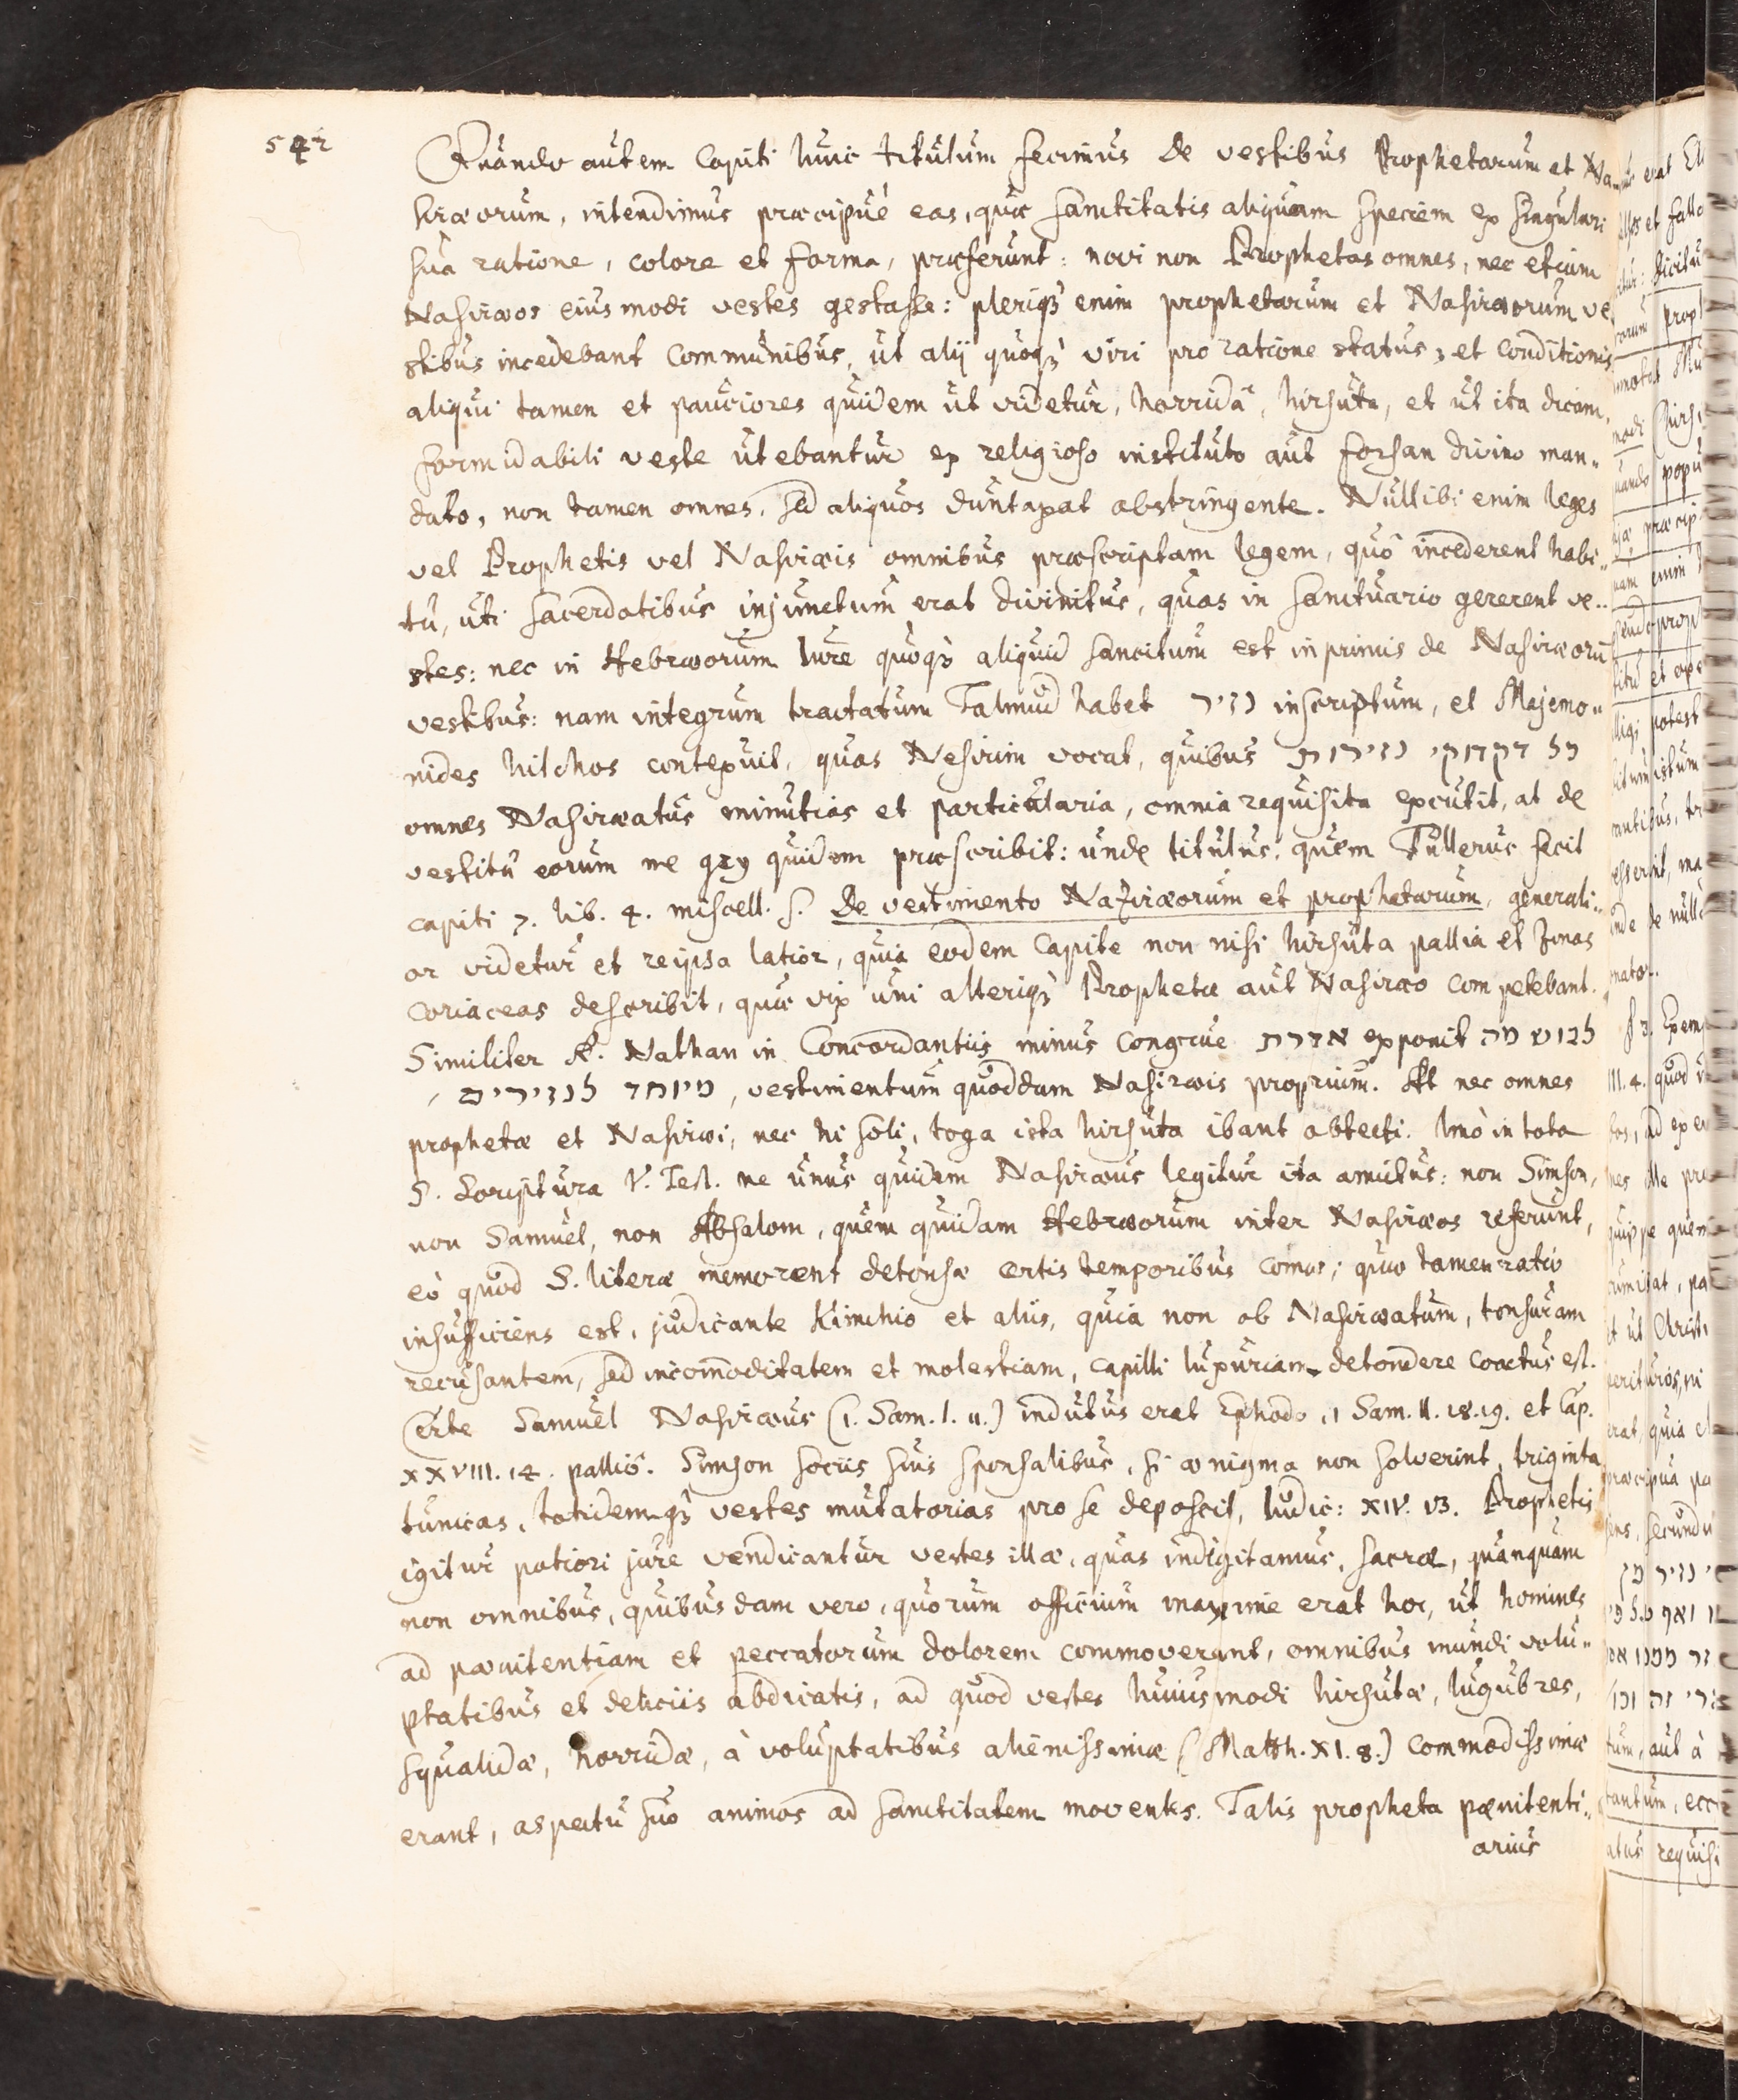 542
Quando autem Capiti huic titulum fecimus de vestibus Prophetarum et Na-
siræorum, intendimus præcipuè eas, quæ sanctitatis aliquam speciem ex singulari
suâ ratione, colore et forma, præferunt: novi non Prophetas omnes, nec etiam
Nasiræos eiusmodi vestes gestasse: pleriq₃ enim prophetarum et Nasiræorum ve
stibus incedebant communibus, ut alij quoq₃ viri pro ratione status, et conditionis
aliqui tamen et pauciores quidem ut videtur, horridâ, hirsuta, et ut ita dicam,
formidabili veste utebantur ex religioso instituto aut forsan divino man„
dato, non tamen omnes, sed aliquos duntaxat abstringente. Nullibi enim leges
vel Prophetis vel Nasiræis omnibus præscriptam legem, quô incederent habi„
tu, uti sacerdotibus injunctum erat divinitus, quas in sanctuario gererent ve„
stes: nec in Hebræorum Iure quoq₃ aliquid sancitum est inprimis de Nasiræorū
vestibus: nam integrum tractatum Talmud habet נזיר inscriptum, et Majemo„
nides hilchos contexuit, quas Nesirim vocat, quibus כל דקדוקי נזירות
omnes Nasiræatus minutias et particularia, omnia requisita excutit, at de
vestitu eorum ne gry quidem præscribit: unde titulus, quem Fullerus fecit
capiti 7. lib. 4. miscell. s. De vestimento Naziræorum et prophetarum, generali„
or videtur et reipsa latior, quia eodem Capite non nisi hirsuta pallia et Zonas
coriaceas describit, quæ vix uni alteriq₃ Prophetæ aut Nasiræo competebant.
Similiter R. Nathan in Concordantiis minus congrue אדרת exponit לבוש מה
מיוחד לנזירים, vestimentum quoddam Nasiræis proprium. At nec omnes
prophetæ et Nasiræi, nec hi soli, toga ista hirsuta ibant abtecti. Imò in tota
S. Scriptura V. Test. ne unus quidem Nasiræus legitur ita amictus: non Simson,
non Samuel, non Absalom, quem quidam Hebræorum inter Nasiræos referunt,
eò quod S. literæ memorent detonsæ certis temporibus comas; quæ tamen ratio
insufficiens est, judicante Kimchio et aliis, quia non ob Nasiræatum, tonsuram
recusantem, sed incom̄oditatem et molestiam, capilli luxuriam detondere coactus est.
Certe Samuel Nasiræus (1. Sam. I. 11.) indutus erat Ephodo, 1 Sam. II. 18.19. et Cap.
XXVIII. 14. palliô. Simson sociis suis sponsalibus, si ænigma non solverint, triginta
tunicas, totidemq₃ vestes mutatorias pro se deposcit, Iudic: XIV. 13. Prophetis
igitur potiori jure vendicantur vestes illæ, quas indigitamus, sacræ, quanquam
non omnibus, quibusdam vero, quorum officium maxime erat hoc, ut homines
ad pænitentiam et peccatorum dolorem commoverent, omnibus mundi volu„
ptatibus et deliciis abdicatis, ad quod vestes huiusmodi hirsutæ, lugubres,
squalidæ, horridæ, à voluptatibus alienissimæ (Matth. XI. 8.) commodissimæ
erant, aspectu suo animos ad sanctitatem moventes. Talis propheta pænitenti„
arius